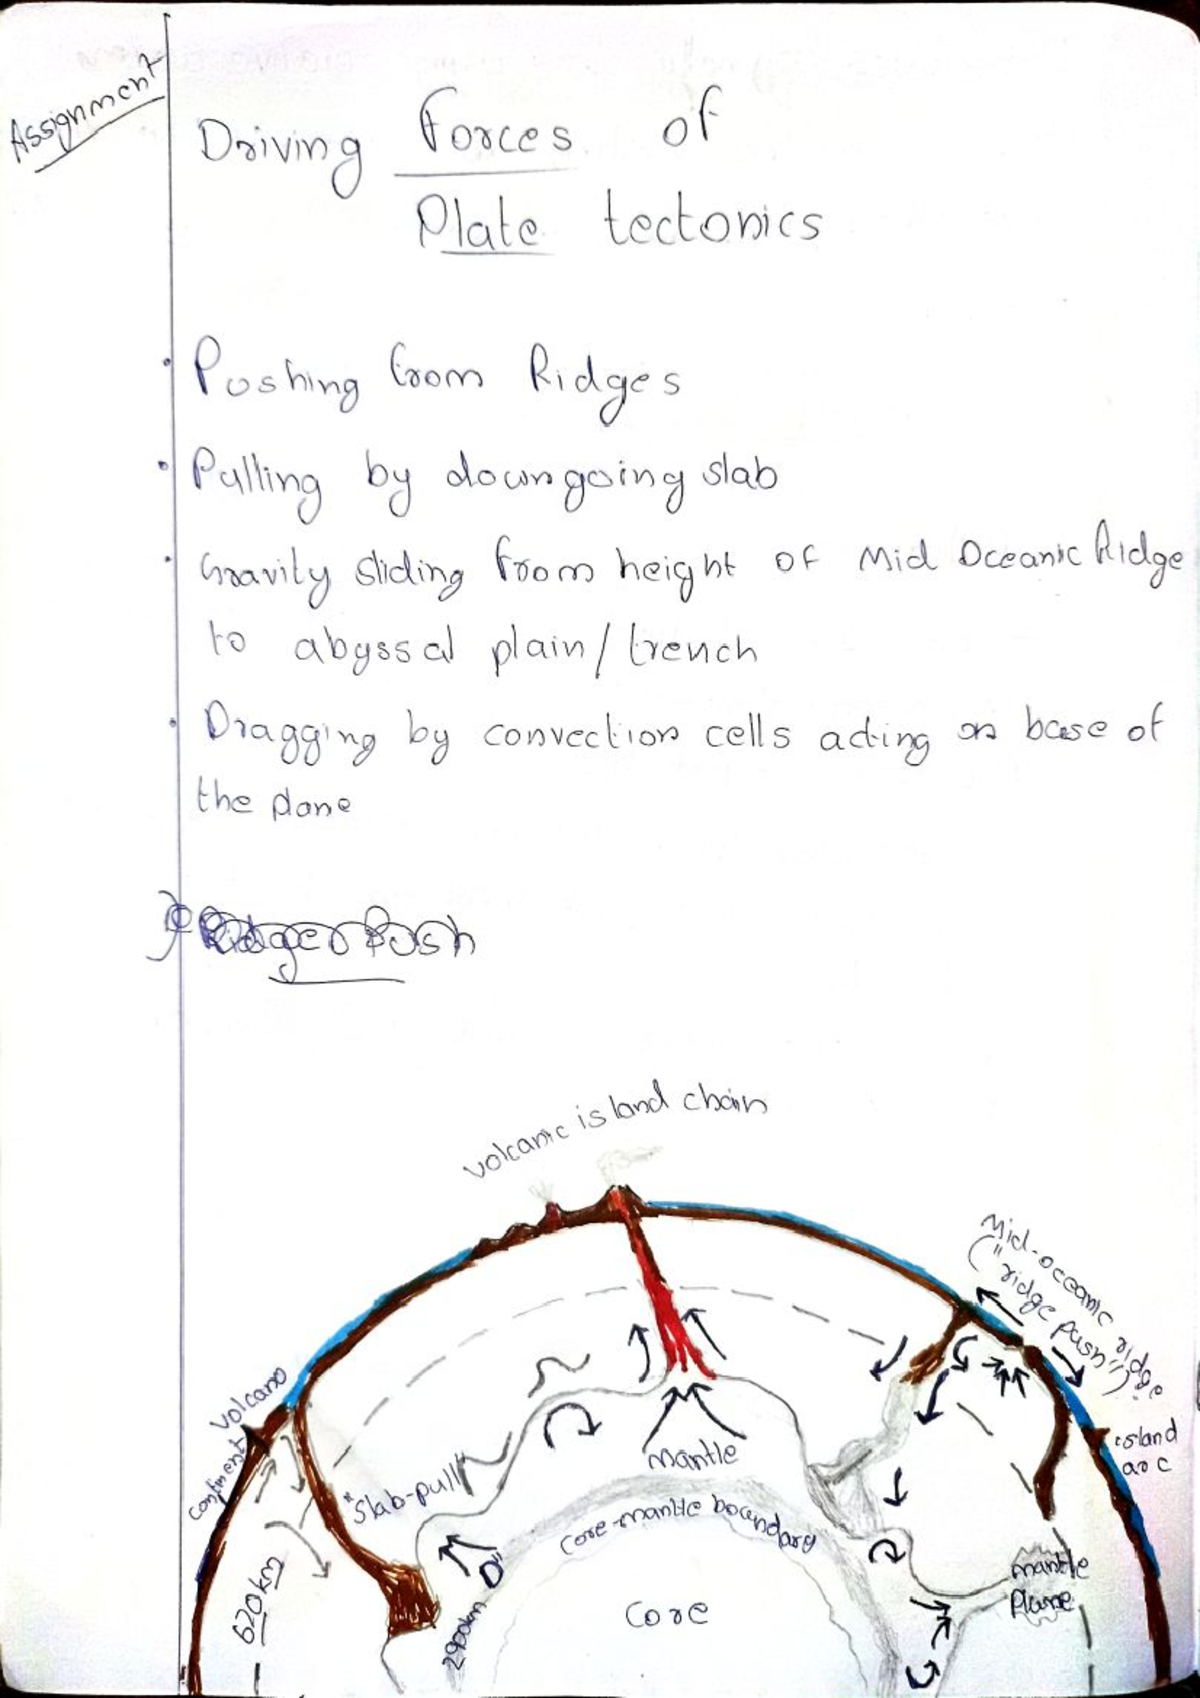 Assignment
Driving Forces of
Plate tectonics
• Pushing from Ridges
• Pulling by downgoing slab
• Gravity sliding from height of Mid Oceanic Ridge
to abyssal plain/trench
• Dragging by convection cells acting on base of
the plane
Ridge Push
volcanic island chain
Mid-oceanic ridge
("ridge push")
volcano
continent
island
arc
"Slab-pull"
Mantle
core-mantle boundary
620km
2900km D"
Core
mantle
Plume